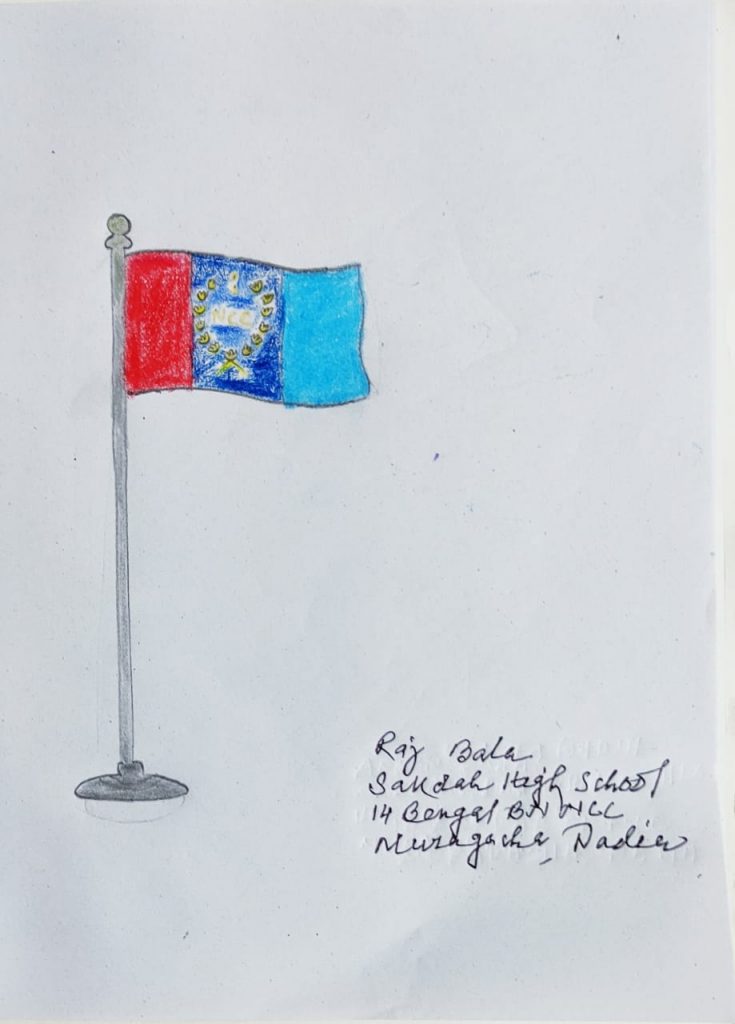 NCC
Raj Bala
Sakdah High School
14 Bengal BN NCC
Muragacha, Nadia